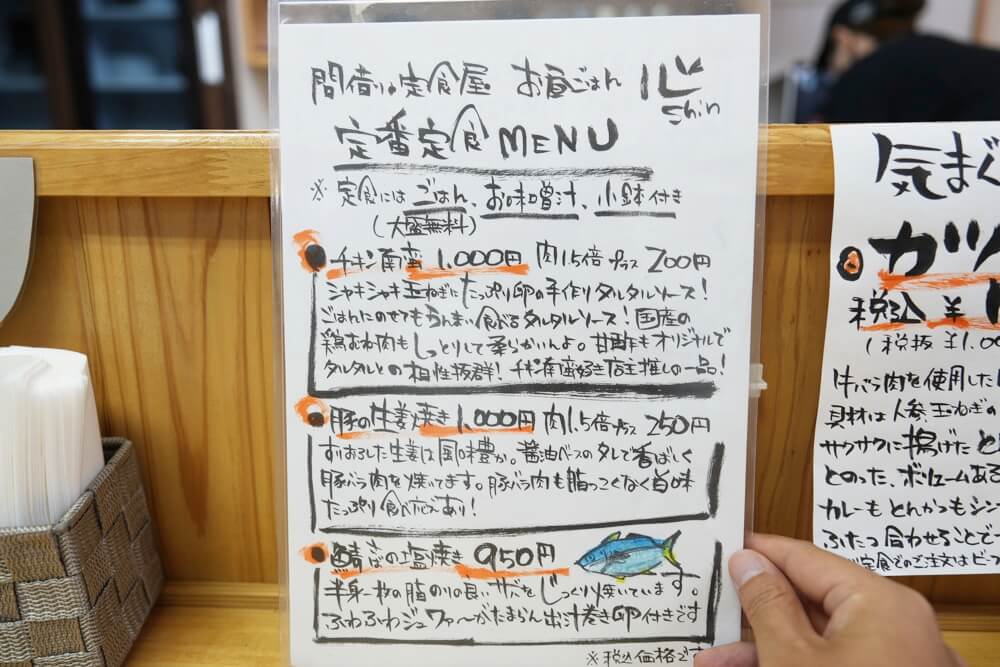 間借りの定食屋 お昼ごはん 心
shin
定番定食 MENU
※ 定食には ごはん、お味噌汁、小鉢付き
(大盛無料)
チキン南蛮 1,000円 肉1.5倍 プラス 200円
シャキシャキ玉ねぎにたっぷり卵の手作りタルタルソース!
ごはんにのせてもうんまい食べるタルタルソース!国産の
鶏むね肉もしっとりして柔らかいんよ。甘酢もオリジナルで
タルタルとの相性抜群! チキン南蛮好き店主推しの一品!
豚の生姜焼き 1,000円 肉1.5倍 プラス 250円
すりおろした生姜は風味豊か。醤油ベースのタレで香ばしく
豚バラ肉を焼いてます。豚バラ肉も脂っこくなく旨味
たっぷり食べ応えあり!
鯖さばの塩焼き 950円
半身一枚の脂のりの良いサバをじっくり焼いています。
ふわふわジュワァ〜がたまらん出汁巻き卵付きです
※税込価格です
気まぐ
ガツ
税込 ¥1
(税抜 ¥1.00
牛バラ肉を使用した
具材は人参、玉ねぎの
サクサクに揚げたと
とのった、ボリュームある
カレーもとんかつもシン
ふたつ合わせることで
定食でのご注文は